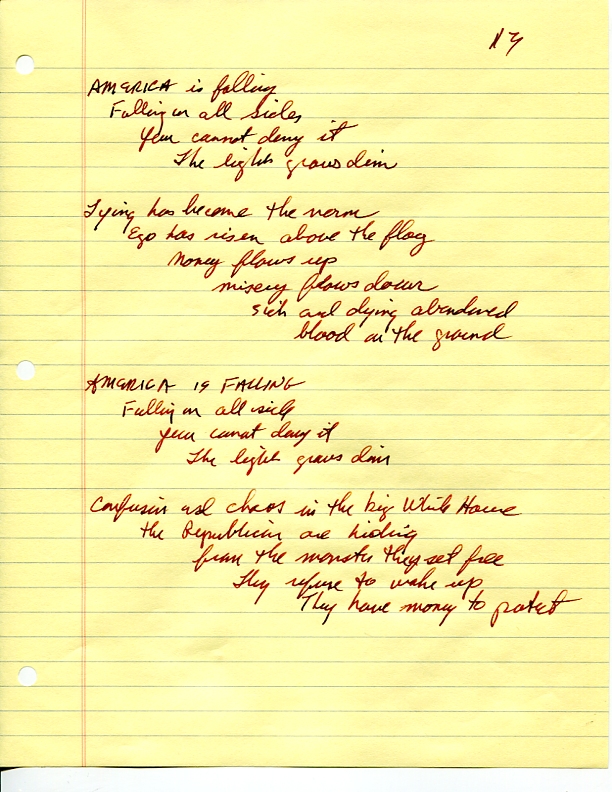 AMERICA is falling
Falling on all sides
You cannot deny it
The light grows dim
Lying has become the norm
Ego has risen above the flag
Money flows up
misery flows down
sick and dying abandoned
blood on the ground
AMERICA IS FALLING
Falling on all side
you cannot deny it
The light grows dim
Confusion and chaos in the big White House
the Republican are hiding
from the monster they set free
They refuse to wake up
They have money to protect